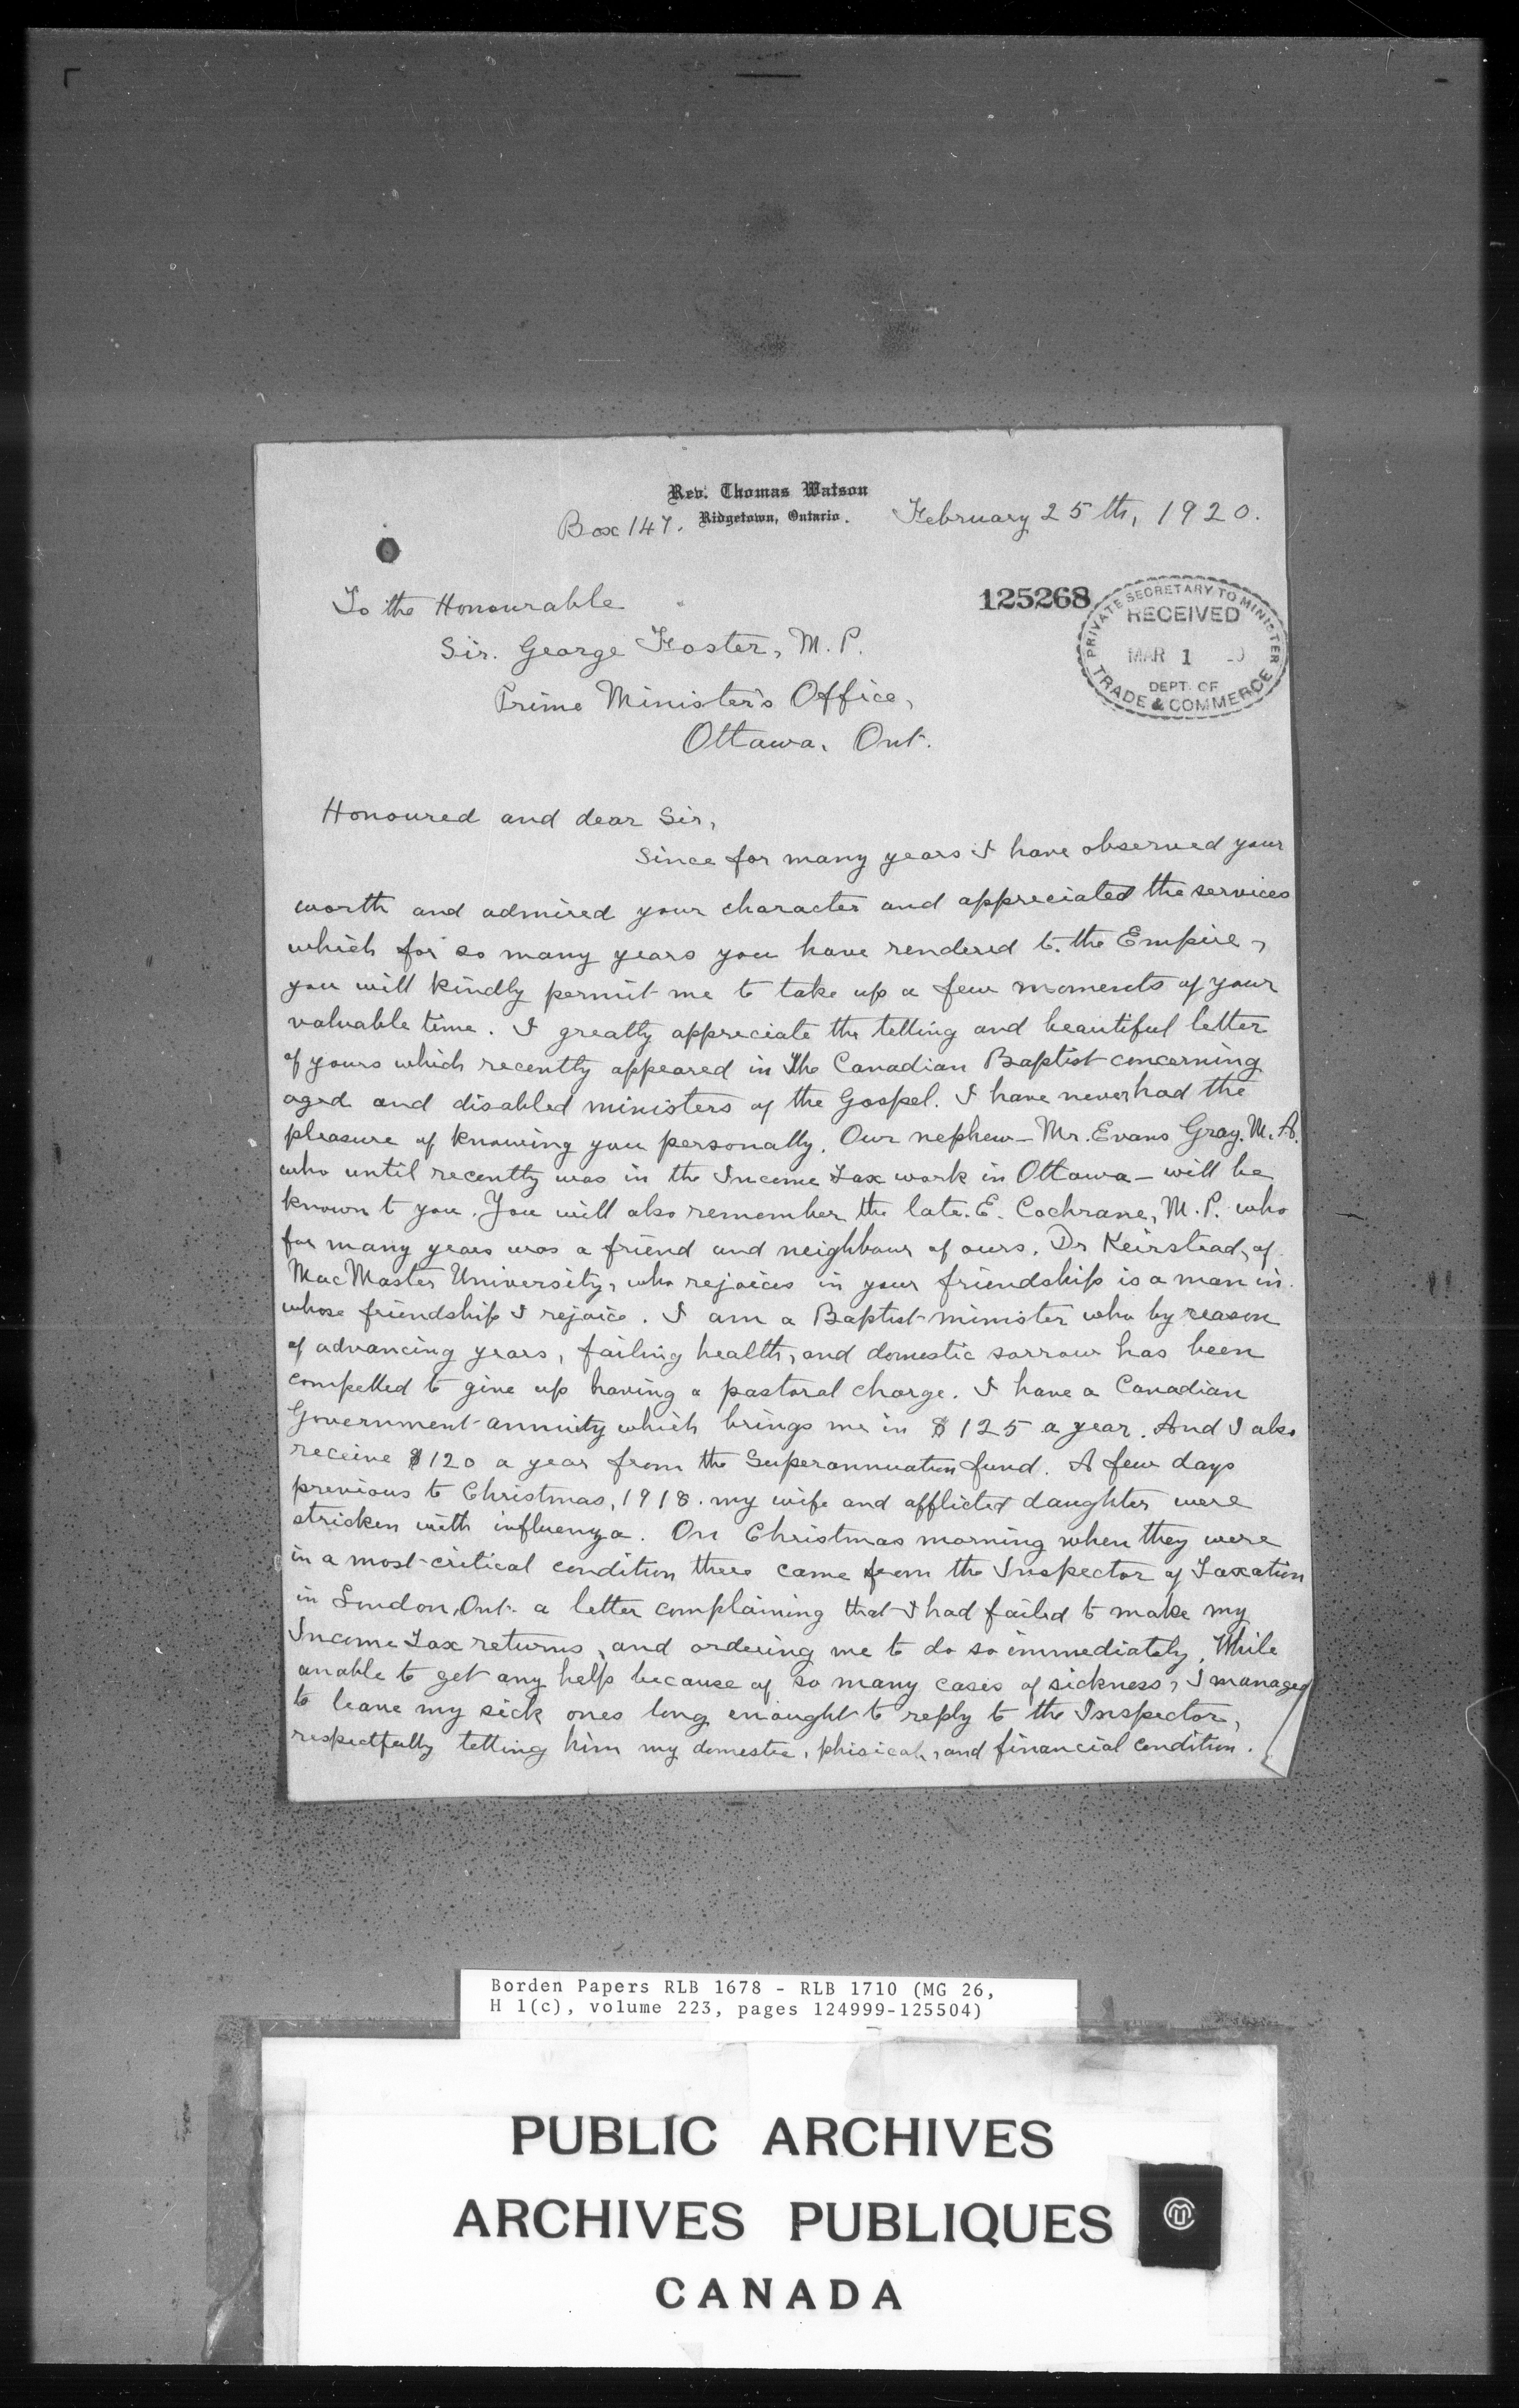 Rev. Thomas Watson
Box 147. Ridgetown, Ontario. February 25th, 1920.
125268
PRIVATE SECRETARY TO MINISTER
RECEIVED
MAR 1
DEPT. OF
TRADE & COMMERCE
To the Honourable
Sir. George Foster, M. P.
Prime Minister's Office,
Ottawa, Ont.
Honoured and dear Sir,
Since for many years I have observed your
worth and admired your character and appreciated the services
which for so many years you have rendered to the Empire,
you will kindly permit me to take up a few moments of your
valuable time. I greatly appreciate the telling and beautiful letter
of yours which recently appeared in The Canadian Baptist concerning
aged and disabled ministers of the Gospel. I have never had the
pleasure of knowing you personally. Our nephew - Mr. Evans Gray. M. A.
who until recently was in the Income Tax work in Ottawa - will be
known to you. You will also remember the late. E. Cochrane, M. P. who
for many years was a friend and neighbour of ours. Dr Keirstead, of
MacMaster University, who rejoices in your friendship is a man in
whose friendship I rejoice. I am a Baptist minister who by reason
of advancing years, failing health, and domestic sorrow has been
compelled to give up having a pastoral charge. I have a Canadian
Government annuity which brings me in $125 a year. And I also
receive $120 a year from the Superannuation fund. A few days
previous to Christmas, 1918. my wife and afflicted daughter were
stricken with influenza. On Christmas morning when they were
in a most critical condition there came from the Inspector of Taxation
in London, Ont. a letter complaining that I had failed to make my
Income Tax returns, and ordering me to do so immediately. While
unable to get any help because of so many cases of sickness, I managed
to leave my sick ones long enought to reply to the Inspector,
respectfully telling him my domestic, phisical, and financial condition.
Borden Papers RLB 1678 - RLB 1710 (MG 26,
H 1(c), volume 223, pages 124999-125504)
PUBLIC ARCHIVES
ARCHIVES PUBLIQUES
CANADA